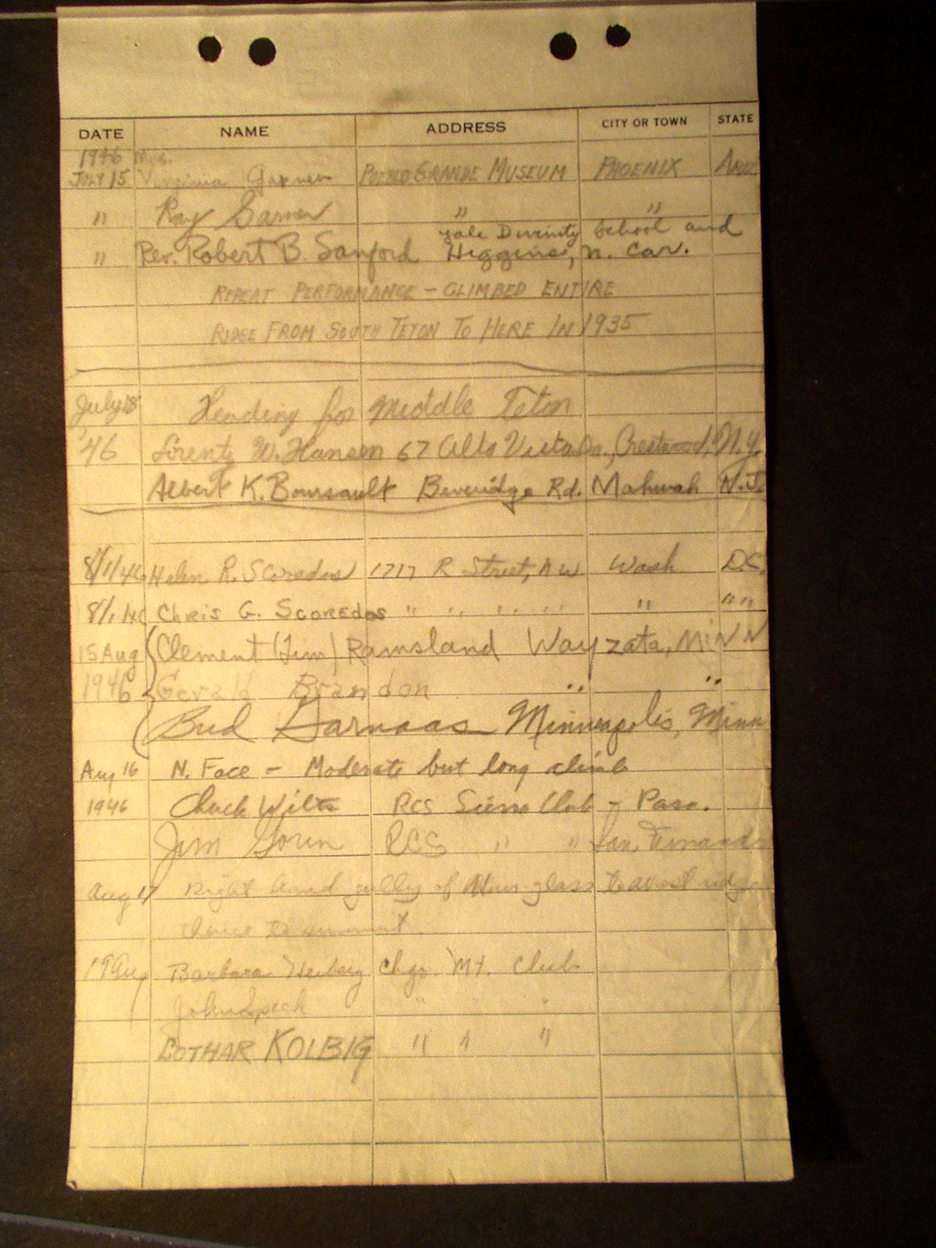 DATE NAME ADDRESS CITY OR TOWN STATE
1946 Mrs.
JULY 15 Virginia Garner PUEBLO GRANDE MUSEUM PHOENIX ARIZ
" Ray Garner " "
Yale Divinity School and
" Rev. Robert B. Sanford Higgins, N. Car.
REPEAT PERFORMANCE - CLIMBED ENTIRE
RIDGE FROM SOUTH TETON TO HERE IN 1935
July 18 Heading for Middle Teton
'46 Lorentz W. Hansen 67 Alta Vista Dr., Crestwood, N.Y.
Albert K. Boursault Beveridge Rd. Mahwah N.J.
8/1/46 Helen R. Scoredos 1717 R Street, N W Wash D.C.
8/1/46 Chris G. Scoredos " " " " " " "
15 Aug Clement (Jim) Ramsland Wayzata, MINN
1946 Gerald Brandon " "
Bud Garnaas Minneapolis, Minn
Aug 16 N. Face - Moderate but long climb
1946 Chuck Wilts RCS Sierra Club - Pasa.
Jim Gorin RCS " " San Fernando
Aug 17 Right hand gulley of glass to ridge
thence to summit.
19 Aug Barbara Chgo. Mt. Club
John Speck " "
LOTHAR KOLBIG " " "